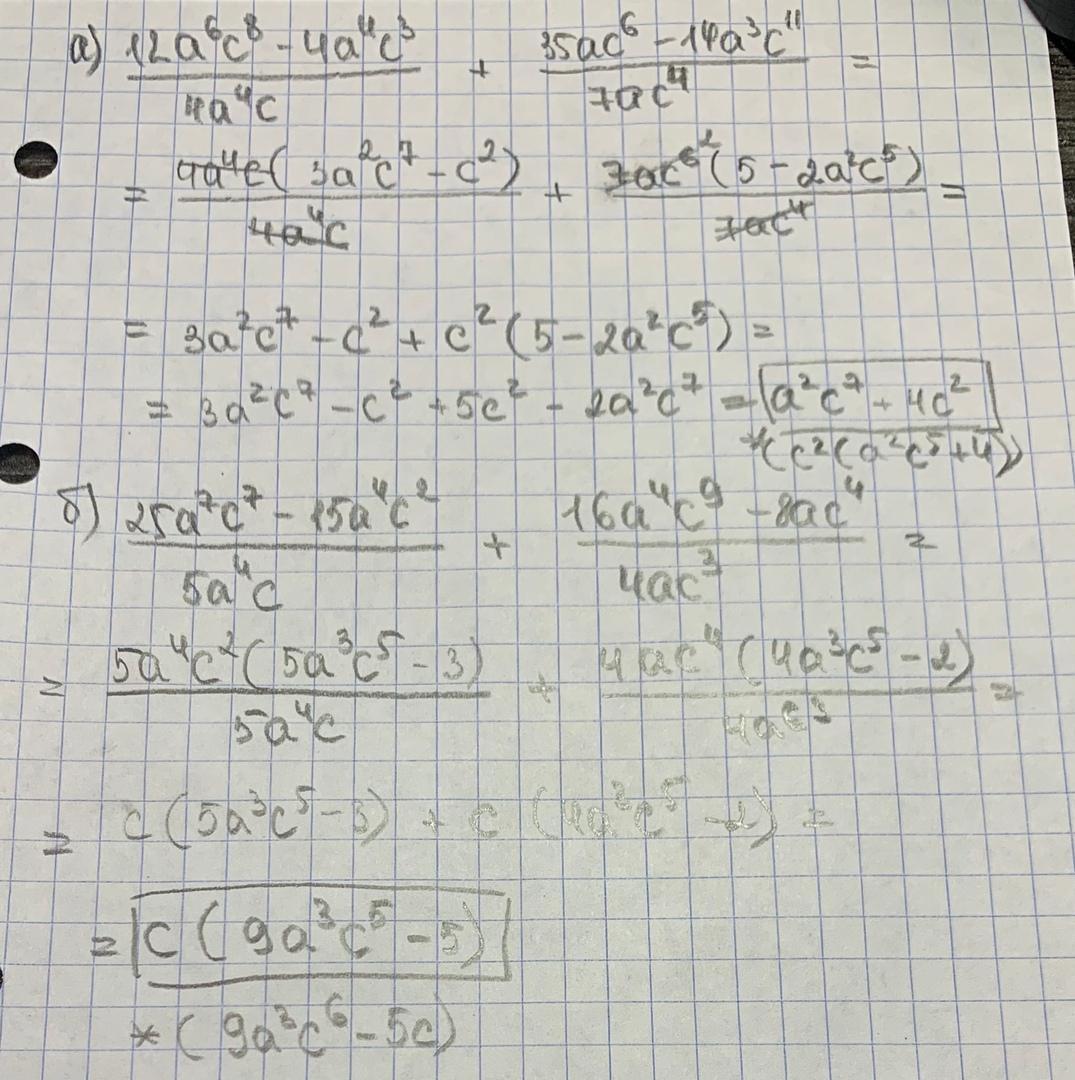 а) (12a⁶c⁸ - 4a⁴c³)/(4a⁴c) + (35ac⁶ - 14a³c¹¹)/(7ac⁴) =
= (4a⁴c(3a²c⁷ - c²))/(4a⁴c) + (7ac⁶²(5 - 2a²c⁵))/(7ac⁴) =
= 3a²c⁷ - c² + c²(5 - 2a²c⁵) =
= 3a²c⁷ - c² + 5c² - 2a²c⁷ = a²c⁷ + 4c²
*(c²(a²c⁵+4))
б) (25a⁷c⁷ - 15a⁴c²)/(5a⁴c) + (16a⁴c⁹ - 8ac⁴)/(4ac³) =
= (5a⁴c²(5a³c⁵ - 3))/(5a⁴c) + (4ac⁴(4a³c⁵ - 2))/(4ac³) =
= c(5a³c⁵ - 3) + c(4a³c⁵ - 2) =
= c(9a³c⁵ - 5)
*(9a³c⁶ - 5c)